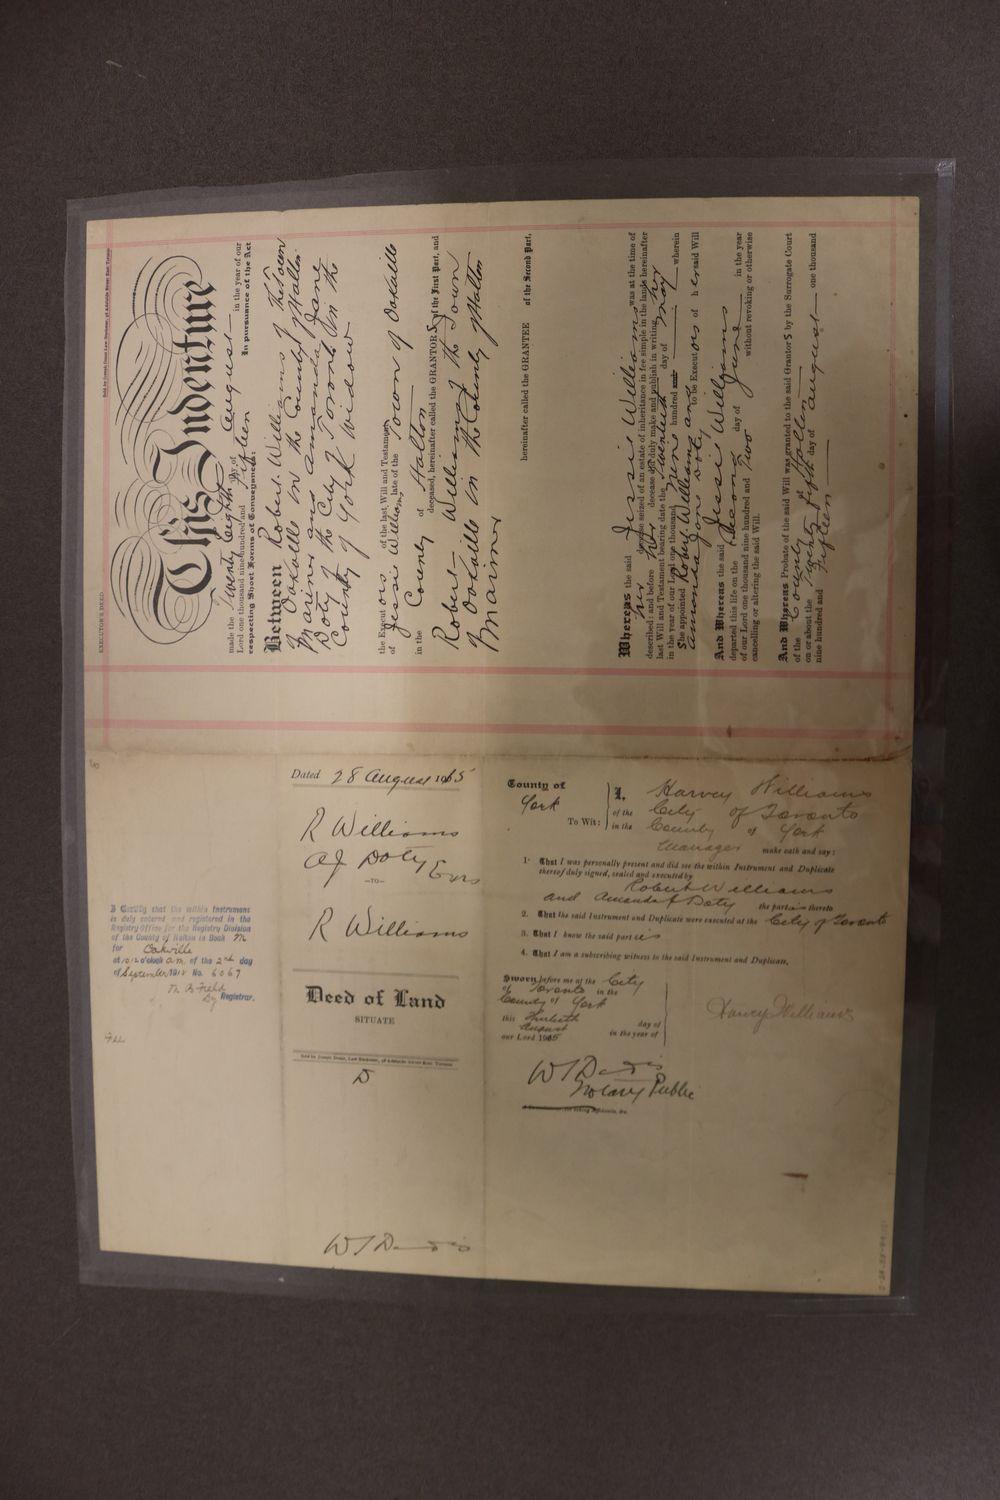 EXECUTOR'S DEED.
This Indenture
made the Twenty Eighth day of August in the year of our
Lord one thousand nine hundred and Fifteen In pursuance of the Act
respecting Short Forms of Conveyances:
Between Robert Williams of the Town
of Oakville in the County of Halton
Mariner and Amanda Jane
Doty of the City of Toronto in the
County of York Widow
the Executors of the last Will and Testament
of Jessie Williams late of the Town of Oakville
in the County of Halton
deceased, hereinafter called the GRANTORS of the First Part, and
Robert Williams of the Town
of Oakville in the County of Halton
Mariner
hereinafter called the GRANTEE of the Second Part.
Whereas the said Jessie Williams was at the time of
her decease seized of an estate of inheritance in fee simple in the lands hereinafter
described: and before her decease did duly make and publish in writing her
last Will and Testament bearing date the Twentieth day of May
in the year of our Lord one thousand nine hundred wherein
She appointed Robert Williams and
Amanda Jane Doty to be Executors of her said Will
And Whereas the said Jessie Williams
departed this life on the Second day of June in the year
of our Lord one thousand nine hundred and Two without revoking or otherwise
cancelling or altering the said Will.
And Whereas Probate of the said Will was granted to the said Grantors by the Surrogate Court
of the County of Halton
on or about the Twenty Fifth day of August one thousand
nine hundred and Fifteen
I Certify that the within Instrument
is duly entered and registered in the
Registry Office for the Registry Division
of the County of Halton in Book M
for Oakville
at 10 o'clock a.m. of the 2nd day
of September No. 6067
Dy Registrar.
Dated 28 August 1915
R Williams
A J Doty Exrs
—TO—
R Williams
Deed of Land
SITUATE
D
W T Davis
County of
York
To Wit:
I, Harvey Williams
of the City of Toronto
in the County of York
Manager make oath and say:
1. That I was personally present and did see the within Instrument and Duplicate
thereof duly signed, sealed and executed by
Robert Williams
and Amanda J Doty the parties thereto
2. That the said Instrument and Duplicate were executed at the City of Toronto
3. That I know the said parties
4. That I am a subscribing witness to the said Instrument and Duplicate.
Sworn before me at the City
of Toronto in the
County of York
this Thirtieth day of
August in the year of
our Lord 1915
Harvey Williams
W T Davis
Notary Public